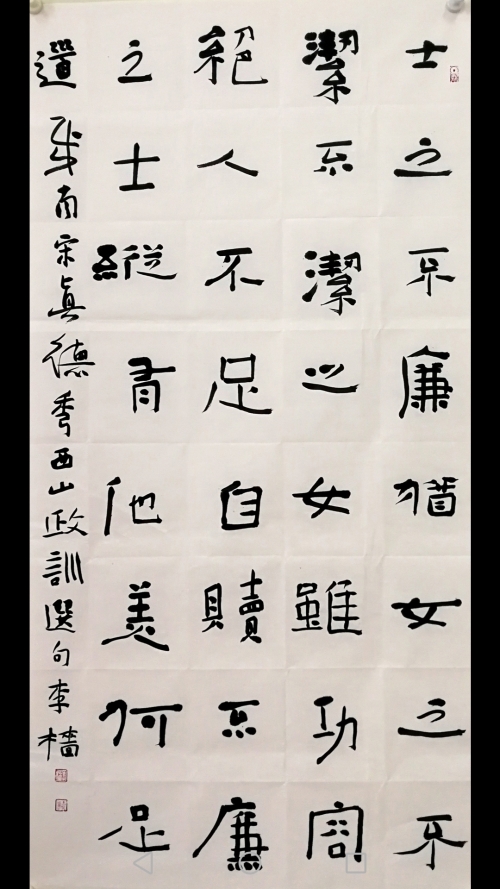 士之不廉猶女之不
潔不潔之女雖功容
絕人不足自贖不廉
之士縱有他美何足
道哉南宋眞德秀西山政訓選句李檣